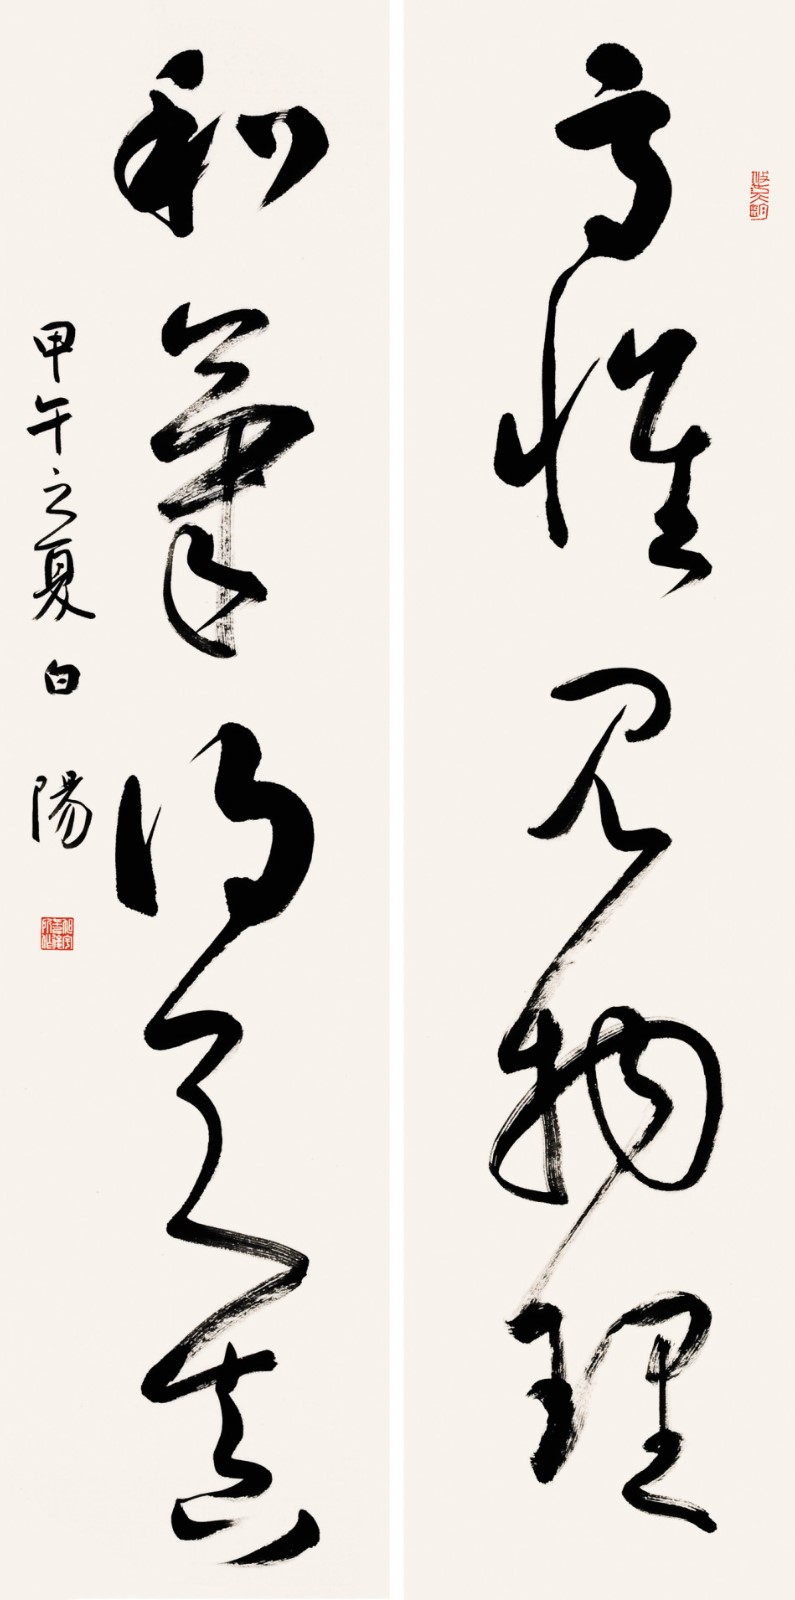 高怀见物理
和气得天真
甲午之夏白陽